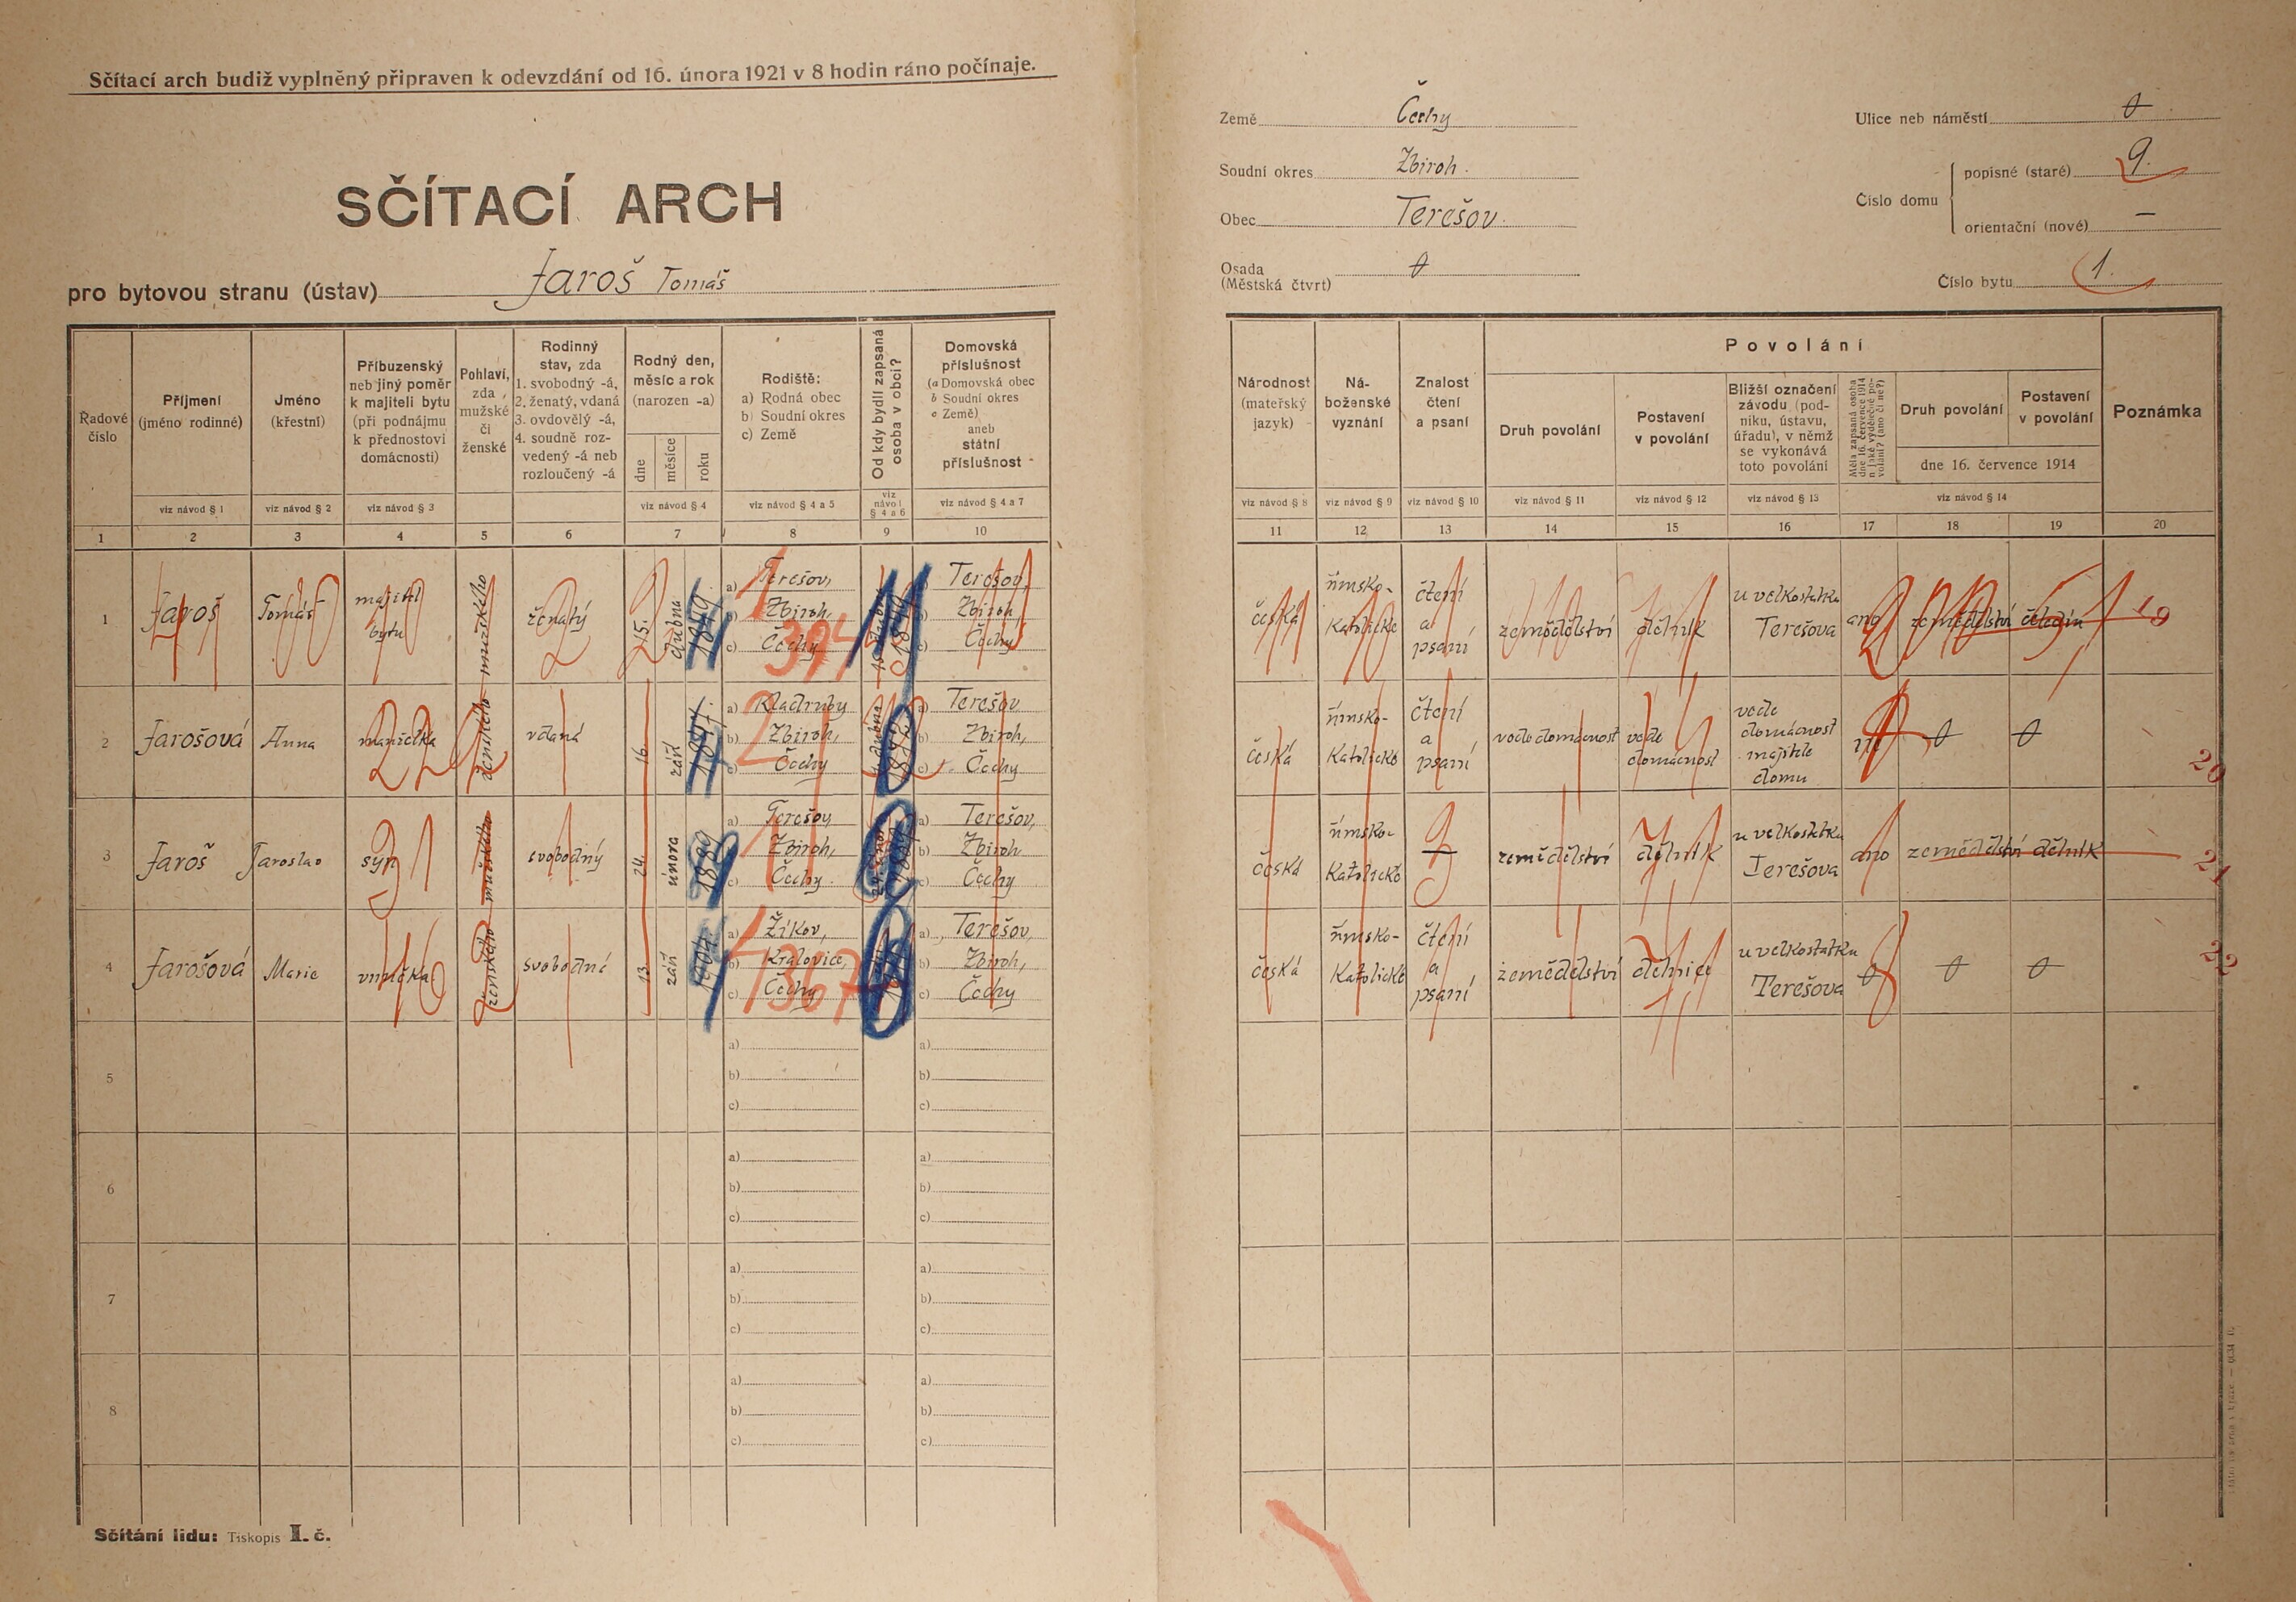 Sčítací arch budiž vyplněný připraven k odevzdání od 16. února 1921 v 8 hodin ráno počínaje.
SČÍTACÍ ARCH
pro bytovou stranu (ústav) Jaroš Tomáš
Země Čechy
Soudní okres Zbiroh.
Obec Terešov.
Osada 0
(Městská čtvrt)
Ulice neb náměstí 0
Číslo domu
popisné (staré) 9.
orientační (nové) —
Číslo bytu 1.
Řadové číslo
Příjmení
(jméno rodinné)
Jméno
(křestní)
Příbuzenský
neb jiný poměr
k majiteli bytu
(při podnájmu
k přednostovi
domácnosti)
Pohlaví,
zda
mužské
či
ženské
Rodinný
stav, zda
1. svobodný -á,
2. ženatý, vdaná
3. ovdovělý -á,
4. soudně roz-
vedený -á neb
rozloučený -á
Rodný den,
měsíc a rok
(narozen -a)
dne
měsíce
roku
Rodiště:
a) Rodná obec
b) Soudní okres
c) Země
Od kdy bydlí zapsaná
osoba v obci?
Domovská
příslušnost
(a Domovská obec
b Soudní okres
c Země)
aneb
státní
příslušnost
Národnost
(mateřský
jazyk)
Ná-
boženské
vyznání
Znalost
čtení
a psaní
Povolání
Druh povolání
Postavení
v povolání
Bližší označení
závodu (pod-
niku, ústavu,
úřadu), v němž
se vykonává
toto povolání
Měla zapsaná osoba
dne 16. července 1914
nějaké výdělečné po-
volání? (ano či ne?)
Druh povolání
Postavení
v povolání
dne 16. července 1914
Poznámka
viz návod § 1
viz návod § 2
viz návod § 3
viz návod § 4
viz návod § 4 a 5
viz
návod
§ 4 a 6
viz návod § 4 a 7
viz návod § 8
viz návod § 9
viz návod § 10
viz návod § 11
viz návod § 12
viz návod § 13
viz návod § 14
1 2 3 4 5 6 7 8 9 10 11 12 13 14 15 16 17 18 19 20
1 Jaroš Tomáš majitel bytu mužského ženatý 15. dubna 1849
a) Terešov,
b) Zbiroh,
c) Čechy
394
a) Terešov,
b) Zbiroh,
c) Čechy
česká
římsko-
katolické
čtení
a
psaní
zemědělství
dělník
u velkostatku
Terešova
ano
zemědělství
čeledín
19
2 Jarošová Anna manželka ženského vdaná 16. září 1847.
a) Kladruby
b) Zbiroh,
c) Čechy
a) Terešov
b) Zbiroh,
c) Čechy
česká
římsko-
katolické
čtení
a
psaní
vede domácnost
vede
domácnost
vede
domácnost
majitele
domu
ne
0
0
20
3 Jaroš Jaroslav syn mužského svobodný 24. února 1889
a) Terešov,
b) Zbiroh,
c) Čechy
a) Terešov,
b) Zbiroh
c) Čechy
česká
římsko-
katolické
zemědělství
dělník
u velkostatku
Terešova
ano
zemědělství
dělník
21
4 Jarošová Marie vnučka ženského svobodná 13. září 1904.
a) Žikov,
b) Kralovice,
c) Čechy
1367
a) Terešov,
b) Zbiroh,
c) Čechy
česká
římsko-
katolické
čtení
a
psaní
zemědělství
dělnice
u velkostatku
Terešova
0
0
0
22
5
a)
b)
c)
a)
b)
c)
6
a)
b)
c)
a)
b)
c)
7
a)
b)
c)
a)
b)
c)
8
a)
b)
c)
a)
b)
c)
Sčítání lidu: Tiskopis I. č.